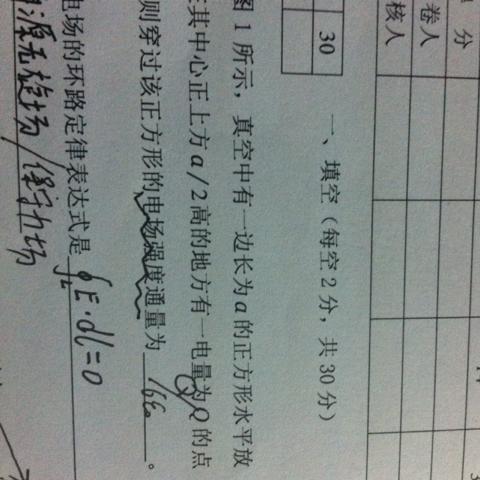 分
卷人
核人
30
一、填空（每空2分，共30分）
图1所示，真空中有一边长为a的正方形水平放
其中心正上方a/2高的地方有一电量为Q的点
则穿过该正方形的电场强度通量为 Q/6ε₀ 。
电场的环路定律表达式是 ∮L E·dl=0
源无旋场/保守力场